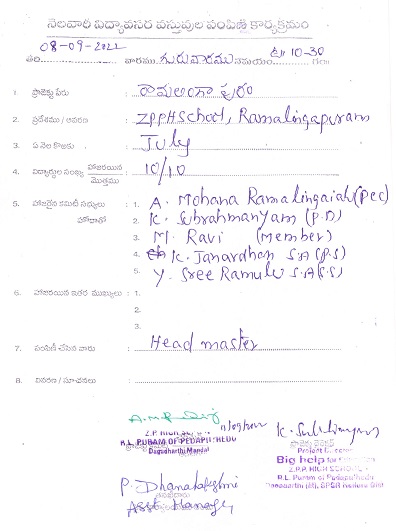 నెలవారీ విద్యావసర వస్తువుల పంపిణీ కార్యక్రమం
08-09-2022
తేది వారము గురువారము సమయం ఉ॥ 10-30 గంట
1. ప్రాజెక్టు పేరు : రామలింగాపురం
2. ప్రదేశము / ఆవరణ : ZPPH School, Ramalingapuram
3. ఏ నెల కొరకు : July
4. విద్యార్థుల సంఖ్య హాజరయిన / మొత్తము : 10/10
5. హాజరైన కమిటీ సభ్యులు : 1. A. Mohana Ramalingaiah (PEC)
హోదాతో 2. K. Subrahmanyam (P.D)
3. M. Ravi (Member)
4. K. Janardhan S.A (P.S)
5. Y. Sree Ramulu S.A (S.S)
6. హాజరయిన ఇతర ముఖ్యులు : 1.
2.
3.
7. పంపిణీ చేసిన వారు : Head master
8. వివరణ / సూచనలు :
Z.P. HIGH SCHOOL
R.L. PURAM OF PEDAPUTHEDU
Dagadharthi Mandal
K. Subrahmanyam
ప్రాజెక్టు డైరెక్టర్
Project Director
Big help for
Z.P.P. HIGH SCHOOL
R.L. Puram of Pedaputhedu
(M), SPSR Nellore Dist
P. Dhanalakshmi
Asst Manager